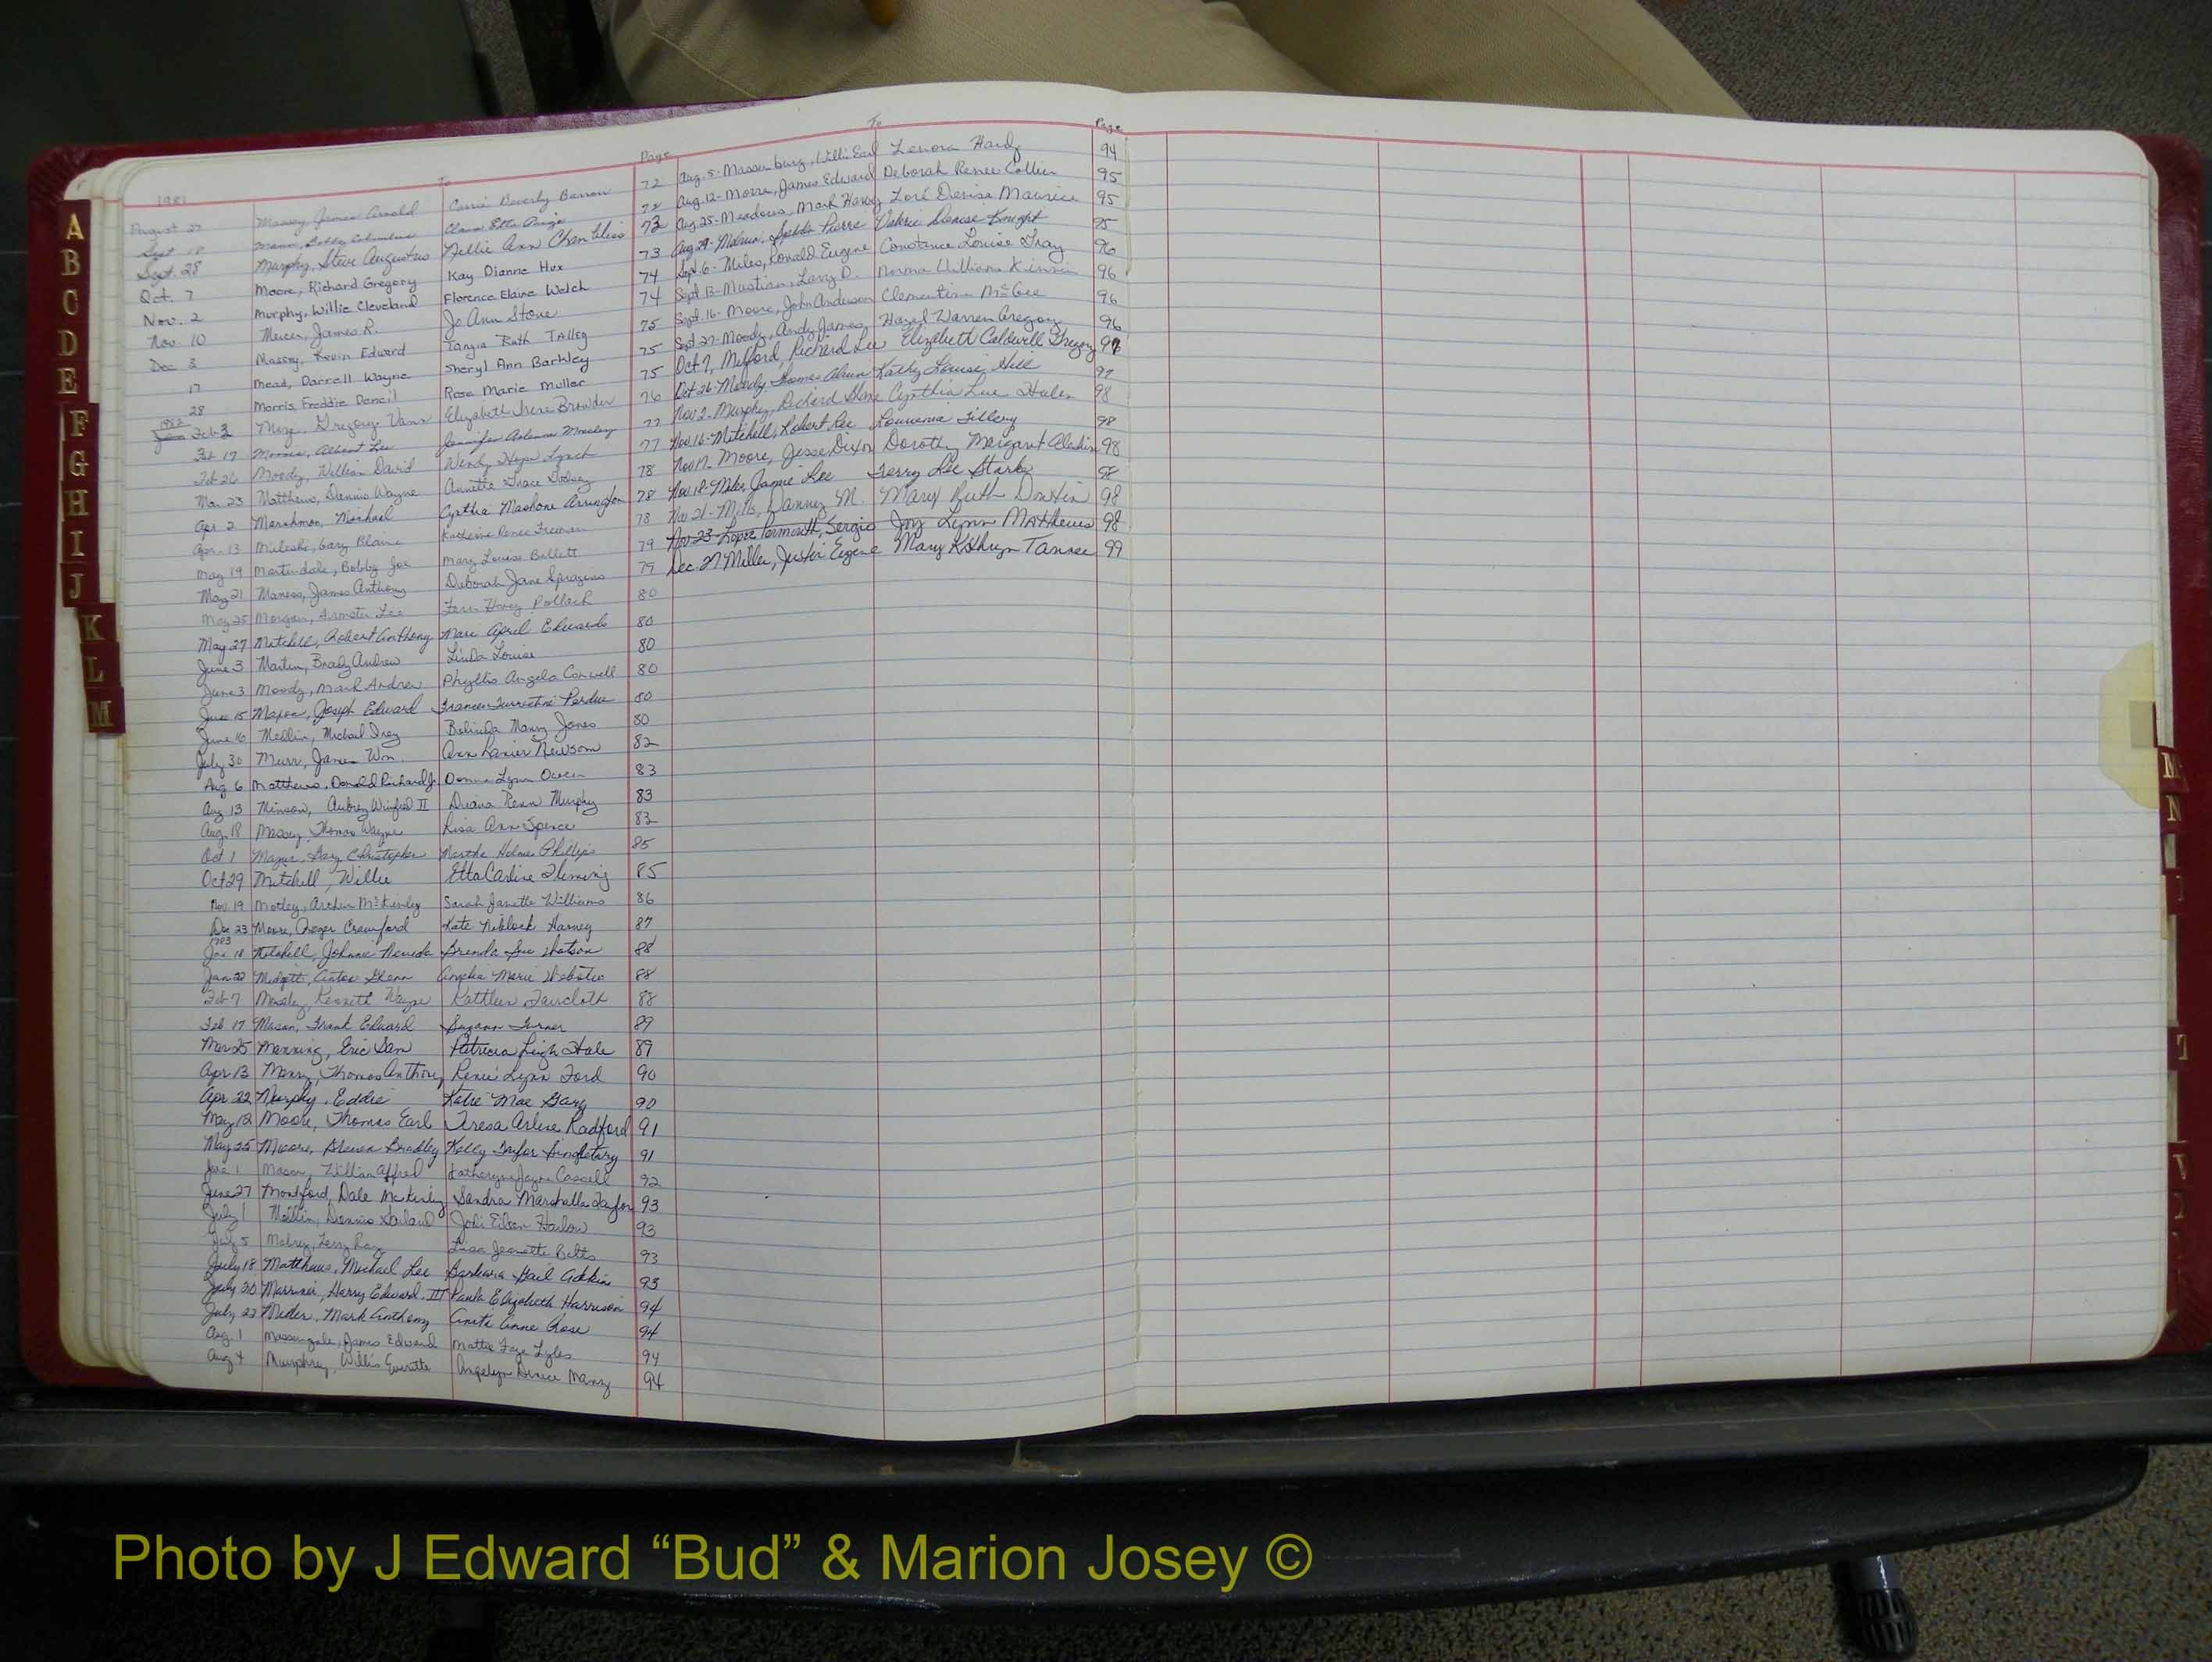 To Page To Page
1981
August 27 Massey, James Arnold Carrie Beverly Barrow 72
Sept 18 Mann, Bobby Columbus Clara Etta 72
Sept. 28 Murphy, Steve Augustus Nellie Ann 73
Oct. 7 Moore, Richard Gregory Kay Dianne Hux 73
Nov. 2 Murphy, Willie Cleveland Florence Elaine Welch 74
Nov. 10 Mercer, James R. Jo Ann Stone 74
Dec 3 Massey, Kevin Edward Tanya Ruth Talley 75
17 Mead, Darrell Wayne Sheryl Ann Barkley 75
28 Morris, Freddie Doncil Rose Marie Muller 75
1982
Feb 3 Gregory Vann Elizabeth Irene Browder 76
Feb 17 Morris, Albert Lee Jennifer Arlenne Moseley 77
Feb 26 Moody, William David Wendy Lynch 77
Mar 23 Matthews, Dennis Wayne Annette Grace Dolsey 78
Apr 2 Marshmon, Michael Cynthia Mashone Arrington 78
Apr. 13 Gary Blaine Katherine Renee Freeman 78
May 19 Martindale, Bobby Joe Mary Louise Bellett 79
May 21 Maness, James Anthony Deborah Jane 79
May 25 Morgan, Lee Pollack 80
May 27 Mitchell, Robert Anthony Mari April Edwards 80
June 3 Martin, Brady Andrew Linda Louise 80
June 3 Moody, Mark Andrew Phyllis Angela Conwell 80
June 15 Joseph Edward Frances Perdue 80
June 16 Medlin, Michael Belinda Manry Jones 80
July 30 Murr, James Wm. Ann Lanier Newsom 82
Aug 6 Matthews, Donald Richard Jr. Donna Lynn Owen 83
Aug 13 Minson, Aubrey Winfred II Diana Renn Murphy 83
Aug. 18 Massey, Thomas Wayne Lisa Ann Spence 83
Oct 1 Gary Christopher Martha Holmes Phillips 85
Oct 29 Mitchell, Willie Etta Carline Fleming 85
Nov. 19 Motley, Archer McKinley Sarah Janette Williams 86
Dec 23 Moore, Roger Crawford Kate Niblock Harvey 87
1983
Jan 18 Mitchell, Johnnie Brenda Sue Watson 88
Jan 22 Midgett, Glenn Angelia Marie Webster 88
Feb 7 Moseley, Kenneth Wayne Kathleen Faircloth 88
Feb 17 Mason, Frank Edward Suzann Turner 89
Mar 25 Manning, Eric Sam Patricia Leigh Hale 89
Apr 13 Manry, Thomas Anthony Renee' Lynn Ford 90
Apr 22 Murphy, Eddie Katie Mae Gary 90
May 12 Moore, Thomas Earl Teresa Arlene Radford 91
May 25 Moore, Steven Bradley Kelly Singletary 91
June 1 Mason, William Alfred Katheryn Jayne Cassell 92
June 27 Montford, Dale McKinley Sandra Marshella Taylor 93
July 1 Medlin, Dennis Jodi Eileen Harlow 93
July 5 Mabrey, Terry Ray Lisa Jeanette Betts 93
July 18 Matthews, Michael Lee Barbara Gail Adkins 93
July 20 Marriner, Harry Edward, III Paula Elizabeth Harrison 94
July 22 Miller, Mark Anthony Anita Anne Rose 94
Aug. 1 Massengale, James Edward Mattie Faye Lyles 94
Aug 4 Murphrey, Willis Everette Angelyn Manry 94
Aug. 5- Massenburg, Willie Earl Lenora Hardy 94
Aug. 12- Moore, James Edward Deborah Renee Collier 95
Aug. 25- Meadows, Mark Loré Denise Maurice 95
Aug. 29- Pierre Valerie Denise Knight 95
Sept. 6- Miles, Ronald Eugene Constance Louise Gray 96
Sept 13- Larry D. Norma Williams 96
Sept. 16- Moore, John Anderson Clementine McGee 96
Sept 27- Moody, Andy James Hazel Warren Gregory 96
Oct 7, Milford, Richard Lee Elizabeth Caldwell Gregory
Oct 26- Moody, Thomas Kathy Louise Hill 97
Nov 2- Murphy, Richard Cynthia Lue Hales 98
Nov. 16- Mitchell, Robert Lee Louvenia Tillery 98
Nov 17- Moore, Jesse Dixon Dorothy Margaret 98
Nov. 18- Miles, Jamie Lee Terry Lee Starke 98
Nov 21- Mills, Danny M. Mary Ruth 98
Nov. 23- Sergio Joy Lynn Matthews 98
Dec. 27 Miller, Justin Eugene Mary Kathryn Tanner 99
A
B
C
D
E
F
G
H
I
J
K
L
M
M
N
T
Photo by J Edward “Bud” & Marion Josey ©